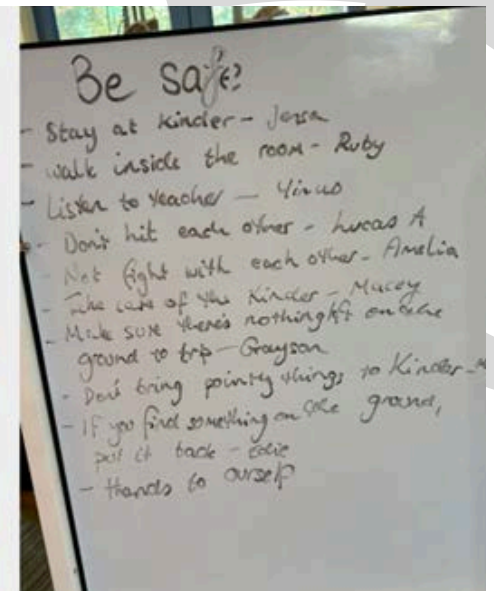 Be safe?
- Stay at Kinder - 
- walk inside the room - Ruby
- Listen to teacher -
- Don't hit each other - Lucas A
- Not fight with each other - Amelia
- Take care of the Kinder - Macey
- Make sure there's nothing left on the
ground to trip - Grayson
- Don't bring pointy things to Kinder -
- If you find something on the ground,
put it back - Edie
- Hands to ourself